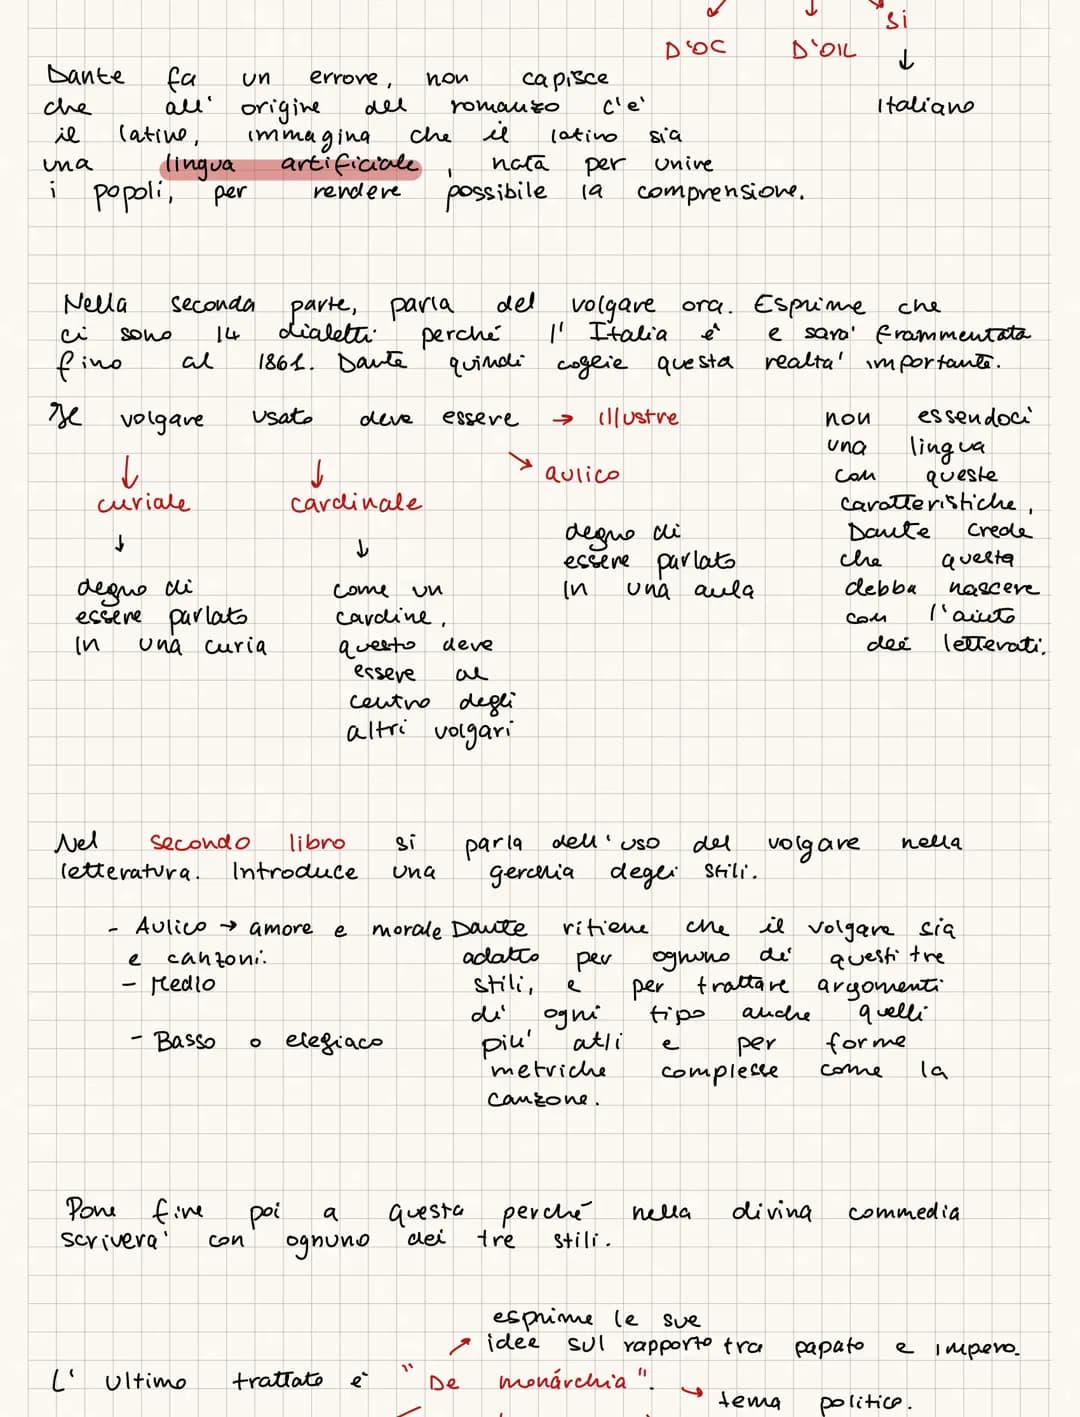 si
D'OC D'OIL
Italiano
Dante fa un errore, non capisce
che all' origine del romanzo c'e'
il latino, immagina che il latino sia
una lingua artificiale, nata per unire
i popoli, per rendere possibile la comprensione.
Nella seconda parte, parla del volgare ora. Esprime che
ci sono 14 dialetti perché l' Italia è e sara' frammentata
fino al 1861. Dante quindi coglie questa realta' importante.
Il volgare usato deve essere → illustre
aulico
curiale cardinale
degno di
essere parlato
in una curia
come un
cardine,
questo deve
essere al
centro degli
altri volgari
degno di
essere parlato
in una aula
non essendoci
una lingua
con queste
caratteristiche,
Dante crede
che questa
debba nascere
con l'aiuto
dei letterati.
Nel secondo libro si parla dell'uso del volgare nella
letteratura. Introduce una gerchia degli stili.
- Aulico → amore e morale
e canzoni.
- Medio
- Basso o elegiaco
Dante ritiene che il volgare sia
adatto per ognuno di questi tre
stili, e per trattare argomenti
di ogni tipo anche quelli
piu' atli e per forme
metriche complesse come la
canzone.
Pone fine poi a questa perché nella divina commedia
scrivera' con ognuno dei tre stili.
esprime le sue
idee sul rapporto tra papato e impero.
L' ultimo trattato e' "De monárchia".
tema politico.